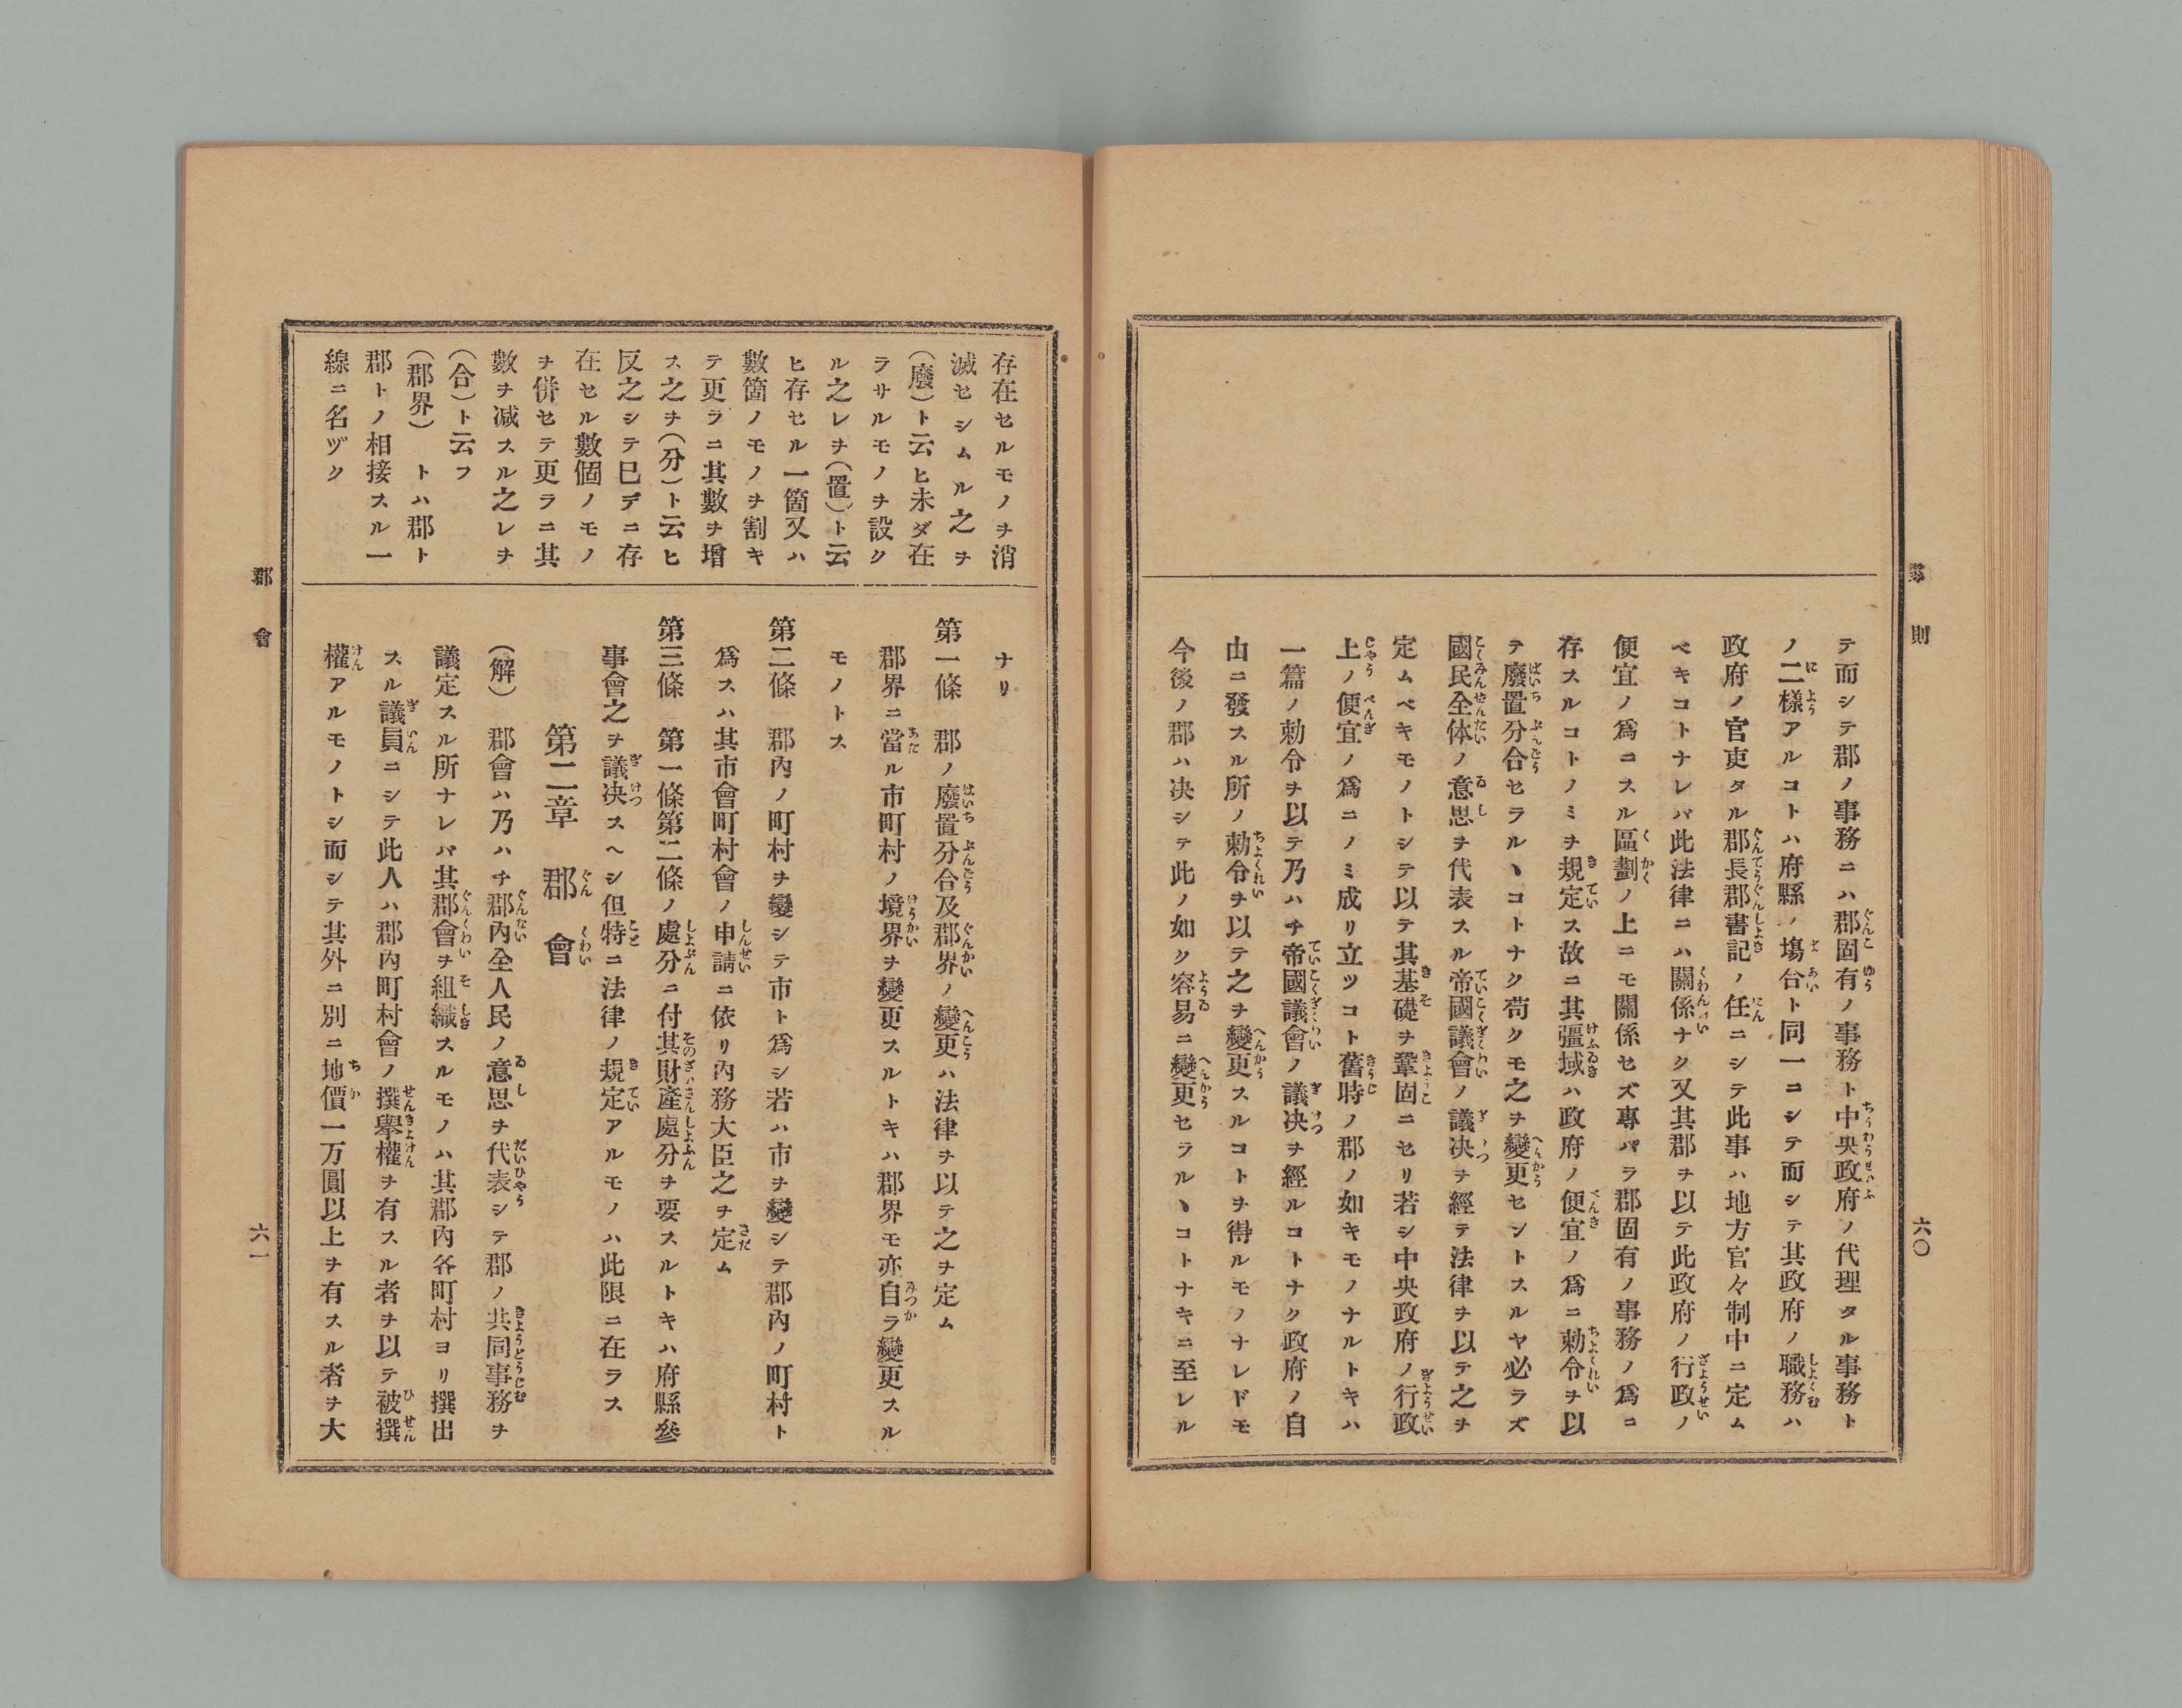 郡則
六〇
テ而シテ郡ノ事務ニハ郡固有ノ事務ト中央政府ノ代理タル事務ト
ノ二樣アルコトハ府縣ノ塲合ト同一ニシテ而シテ其政府ノ職務ハ
政府ノ官吏タル郡長郡書記ノ任ニシテ此事ハ地方官々制中ニ定ム
ベキコトナレバ此法律ニハ關係ナク又其郡ヲ以テ此政府ノ行政ノ
便宜ノ爲ニスル區劃ノ上ニモ關係セズ專パラ郡固有ノ事務ノ爲ニ
存スルコトノミヲ規定ス故ニ其彊域ハ政府ノ便宜ノ爲ニ勅令ヲ以
テ廢置分合セラルヽコトナク苟クモ之ヲ變更セントスルヤ必ラズ
國民全体ノ意思ヲ代表スル帝國議會ノ議决ヲ經テ法律ヲ以テ之ヲ
定ムベキモノトシテ以テ其基礎ヲ鞏固ニセリ若シ中央政府ノ行政
上ノ便宜ノ爲ニノミ成リ立ツコト舊時ノ郡ノ如キモノナルトキハ
一篇ノ勅令ヲ以テ乃ハチ帝國議會ノ議决ヲ經ルコトナク政府ノ自
由ニ發スル所ノ勅令ヲ以テ之ヲ變更スルコトヲ得ルモノナレドモ
今後ノ郡ハ决シテ此ノ如ク容易ニ變更セラルヽコトナキニ至レル
存在セルモノヲ消
滅セシムル之ヲ
（廢）ト云ヒ未ダ在
ラサルモノヲ設ク
ル之レヲ（置）ト云
ヒ存セル一箇又ハ
數箇ノモノヲ割キ
テ更ラニ其數ヲ增
ス之ヲ（分）ト云ヒ
反之シテ已デニ存
在セル數個ノモノ
ヲ併セテ更ラニ其
數ヲ减スル之レヲ
（合）ト云フ
（郡界）トハ郡ト
郡トノ相接スル一
線ニ名ヅク
ナリ
第一條　郡ノ廢置分合及郡界ノ變更ハ法律ヲ以テ之ヲ定ム
郡界ニ當ル市町村ノ境界ヲ變更スルトキハ郡界モ亦自ラ變更スル
モノトス
第二條　郡內ノ町村ヲ變シテ市ト爲シ若ハ市ヲ變シテ郡內ノ町村ト
爲スハ其市會町村會ノ申請ニ依リ內務大臣之ヲ定ム
第三條　第一條第二條ノ處分ニ付其財產處分ヲ要スルトキハ府縣參
事會之ヲ議决スヘシ但特ニ法律ノ規定アルモノハ此限ニ在ラス
第二章　郡會
（解）　郡會ハ乃ハチ郡內全人民ノ意思ヲ代表シテ郡ノ共同事務ヲ
議定スル所ナレバ其郡會ヲ組織スルモノハ其郡內各町村ヨリ撰出
スル議員ニシテ此人ハ郡內町村會ノ撰擧權ヲ有スル者ヲ以テ被撰
權アルモノトシ而シテ其外ニ別ニ地價一万圓以上ヲ有スル者ヲ大
郡會
六一